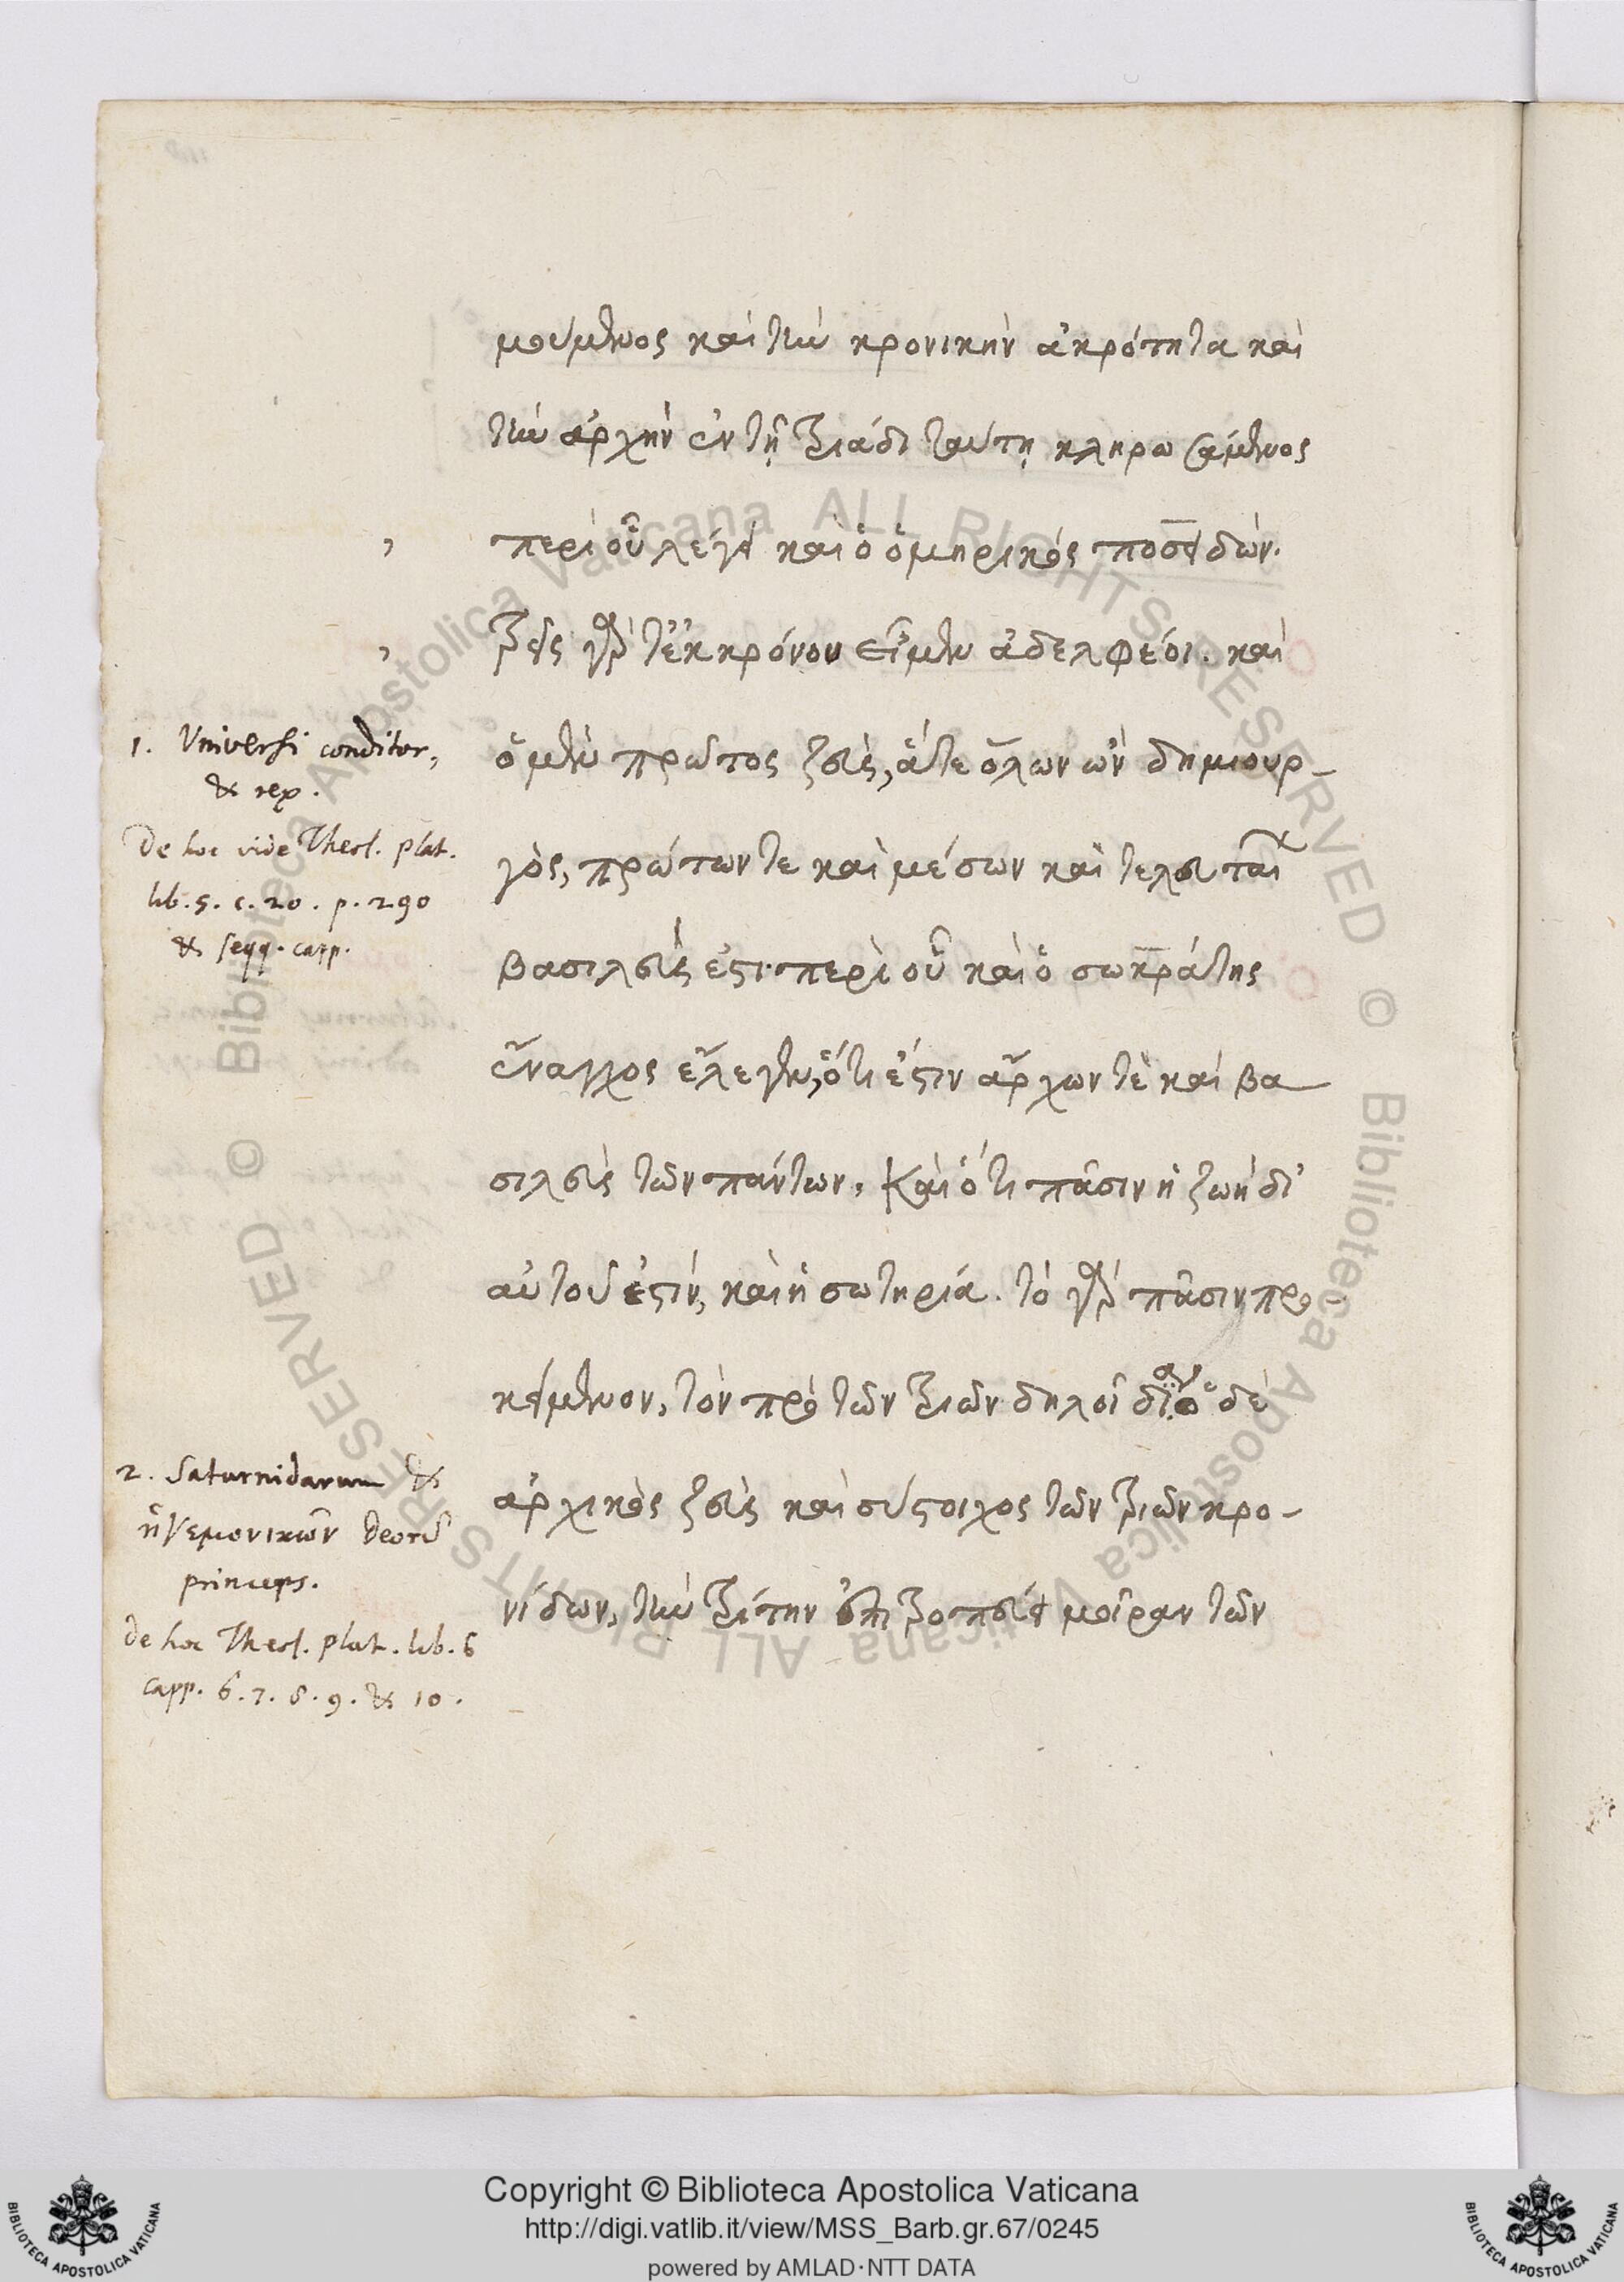 μούμενος καὶ τὴν κρονικὴν ἀκρότητα καὶ
τὴν ἀρχὴν ἐν τῇ τριάδι ταύτῃ κληρωσάμενος
περὶ οὗ λέγει καὶ ὁ ὁμηρικὸς ποσειδῶν.
τρεῖς γάρ τ' ἐκ κρόνου εἰμὲν ἀδελφεόι. καὶ
1. Universi conditor,
& rex.
De hoc vide Theol. plat.
lib. 5. c. 20. p. 290
& seqq. capp.
ὁ μὲν πρῶτος ζεὺς, ἅτε ὅλων ὢν δημιουρ-
γὸς, πρώτων τε καὶ μέσων καὶ τελευταί
βασιλεὺς ἐστι. περὶ οὗ καὶ ὁ σωκράτης
ἔναγχος ἔλεγεν, ὅτι ἐστιν ἄρχων τὲ καὶ βα
σιλεὺς τῶν πάντων, καὶ ὅτι πᾶσιν ἡ ζωὴ δι'
αὐτοῦ ἐστὶν, καὶ ἡ σωτηρία. τὸ γὰρ πᾶσιν προ-
κείμενον, τὸν πρὸ τῶν τριῶν δηλοῖ δία ὁ δὲ
2. Saturnidarum &
ἡγεμονικῶν deorū
princeps.
de hoc Theol. plat. lib. 6
capp. 6. 7. 8. 9. & 10.
ἀρχικὸς ζεὺς καὶ σύστοιχος τῶν τριῶν κρο-
νίδων, τὴν τρίτην ἐπιτροπεύει μοῖραν τῶν
Copyright © Biblioteca Apostolica Vaticana
http://digi.vatlib.it/view/MSS_Barb.gr.67/0245
powered by AMLAD·NTT DATA
BIBLIOTECA APOSTOLICA VATICANA
BIBLIOTECA APOSTOLICA VATICANA
© Biblioteca Apostolica Vaticana ALL RIGHTS RESERVED
© Biblioteca Apostolica Vaticana ALL RIGHTS RESERVED